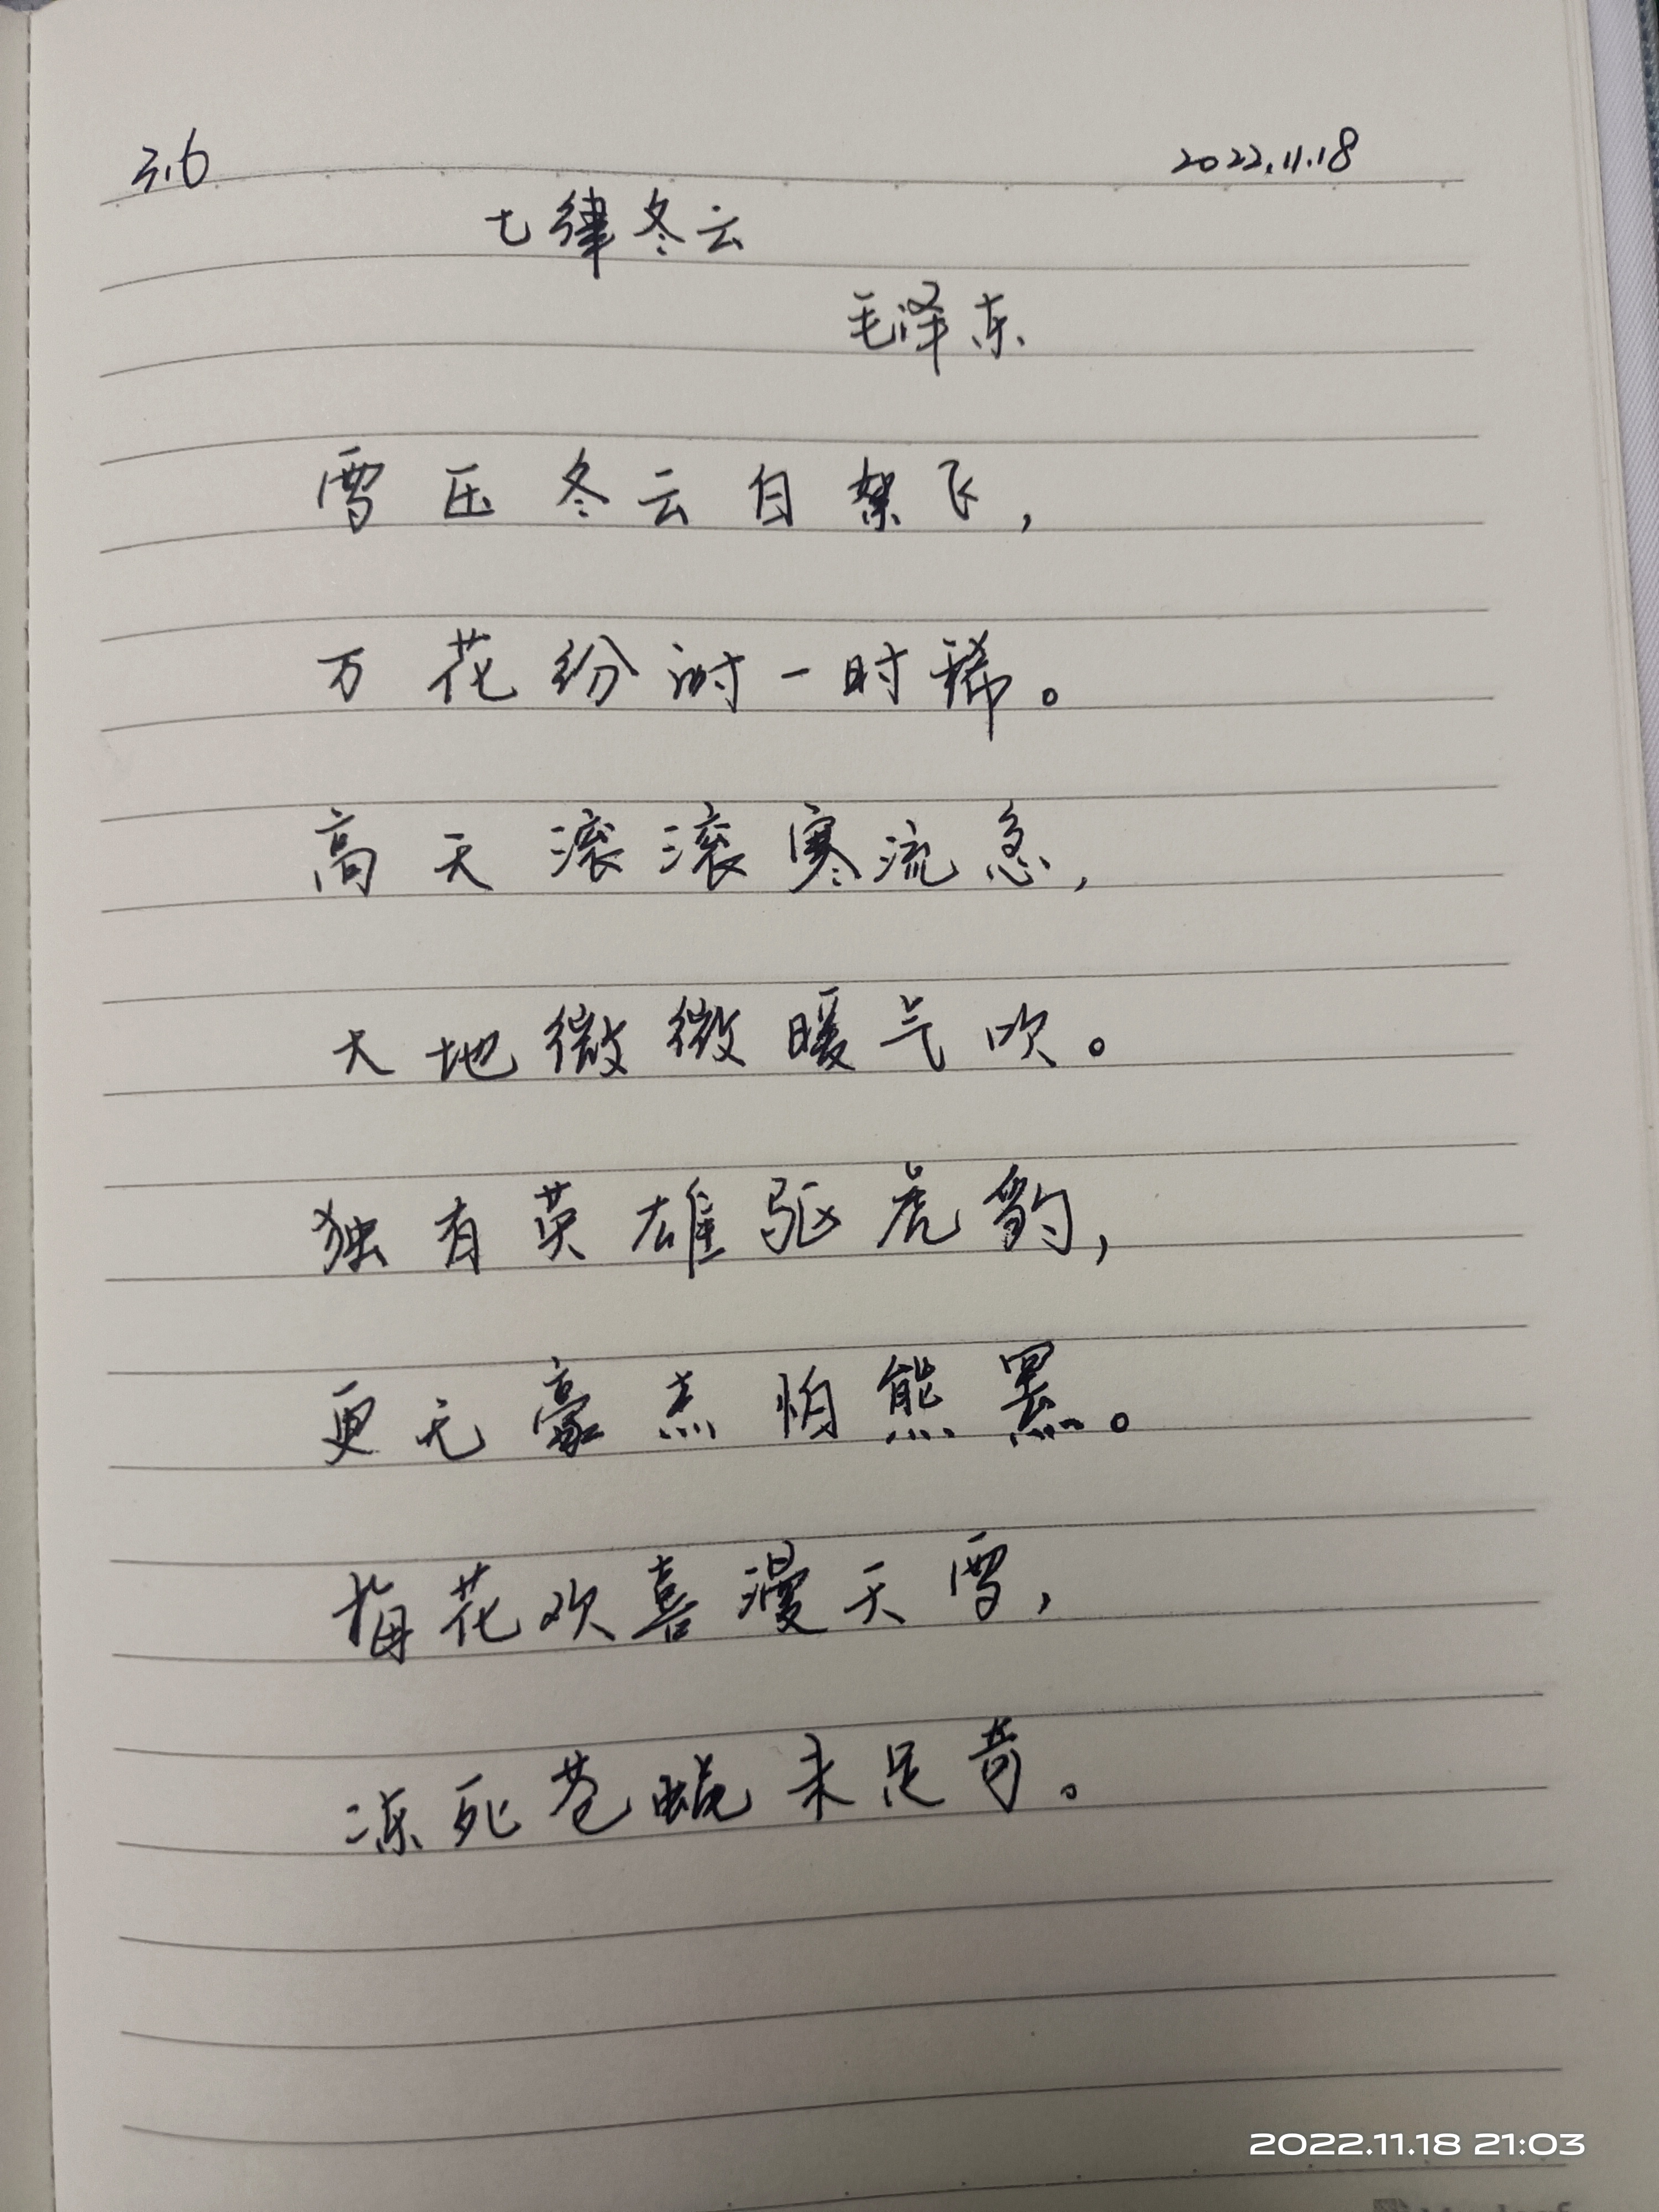 3.6 2022.11.18
七律冬云
毛泽东
雪压冬云白絮飞，
万花纷谢一时稀。
高天滚滚寒流急，
大地微微暖气吹。
独有英雄驱虎豹，
更无豪杰怕熊罴。
梅花欢喜漫天雪，
冻死苍蝇未足奇。
2022.11.18 21:03